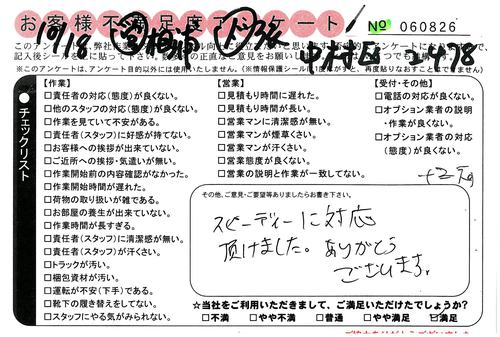 お客様不満足度アンケート
No 060826
10/18
中村区
※このアンケートは、アンケート目的以外には使用いたしません。(※情報保護シールにはがきですと、再度貼りなおすことはできません)
チェックリスト
【作業】
□責任者の対応(態度)が良くない。
□他のスタッフの対応(態度)が良くない。
□作業を見ていて不安がある。
□責任者(スタッフ)に好感が持てない。
□お客様への挨拶が出来ていない。
□ご近所への挨拶・気遣いが無い。
□作業開始前の内容確認がなかった。
□作業開始時間が遅れた。
□荷物の取り扱いが雑である。
□お部屋の養生が出来ていない。
□作業時間が長すぎる。
□責任者(スタッフ)に清潔感が無い。
□責任者(スタッフ)が汗くさい。
□トラックが汚い。
□梱包資材が汚い。
□運転が不安(下手)である。
□靴下の履き替えをしてない。
□スタッフにやる気がみられない。
【営業】
□見積もり時間に遅れた。
□見積もり時間が長い。
□営業マンに清潔感が無い。
□営業マンが煙草くさい。
□営業マンが汗くさい。
□営業態度が良くない。
□営業の説明と作業が一致してない。
【受付・その他】
□電話の対応が良くない。
□オプション業者の説明
・作業が良くない。
□オプション業者の対応
(態度)が良くない。
その他、ご意見・ご要望等ありましたらお書き下さい。
スピーディーに対応
頂けました。ありがとう
ございます。
☆当社をご利用いただきまして、ご満足いただけたでしょうか?
□不満 □やや不満 □普通 □やや満足 ☑満足